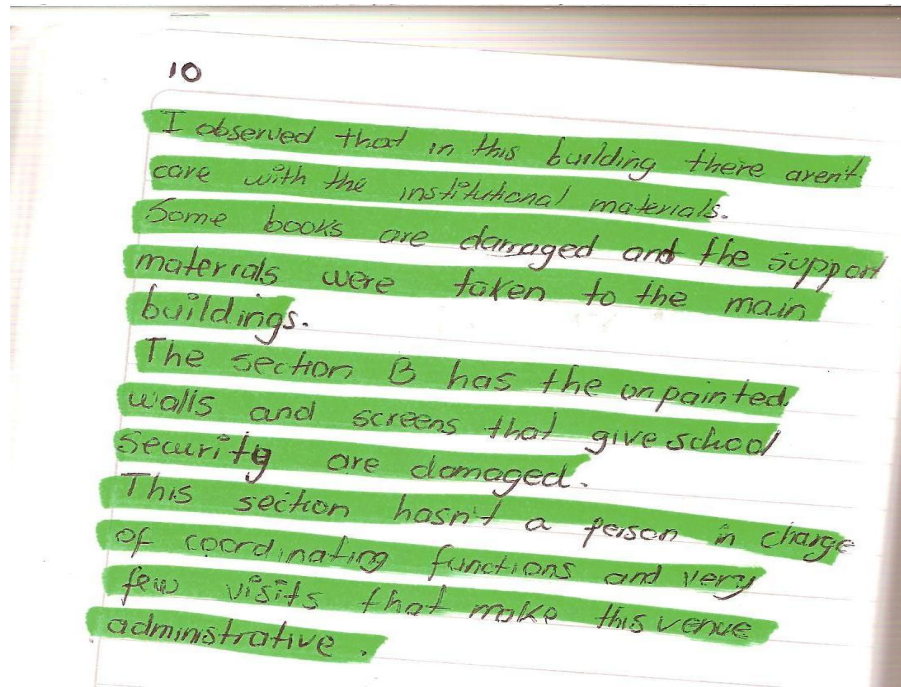 10
I observed that in this building there aren't
care with the institutional materials.
Some books are damaged and the support
materials were taken to the main
buildings.
The section B has the unpainted
walls and screens that give school
security are damaged.
This section hasn't a person in charge
of coordinating functions and very
few visits that make this venue
administrative.